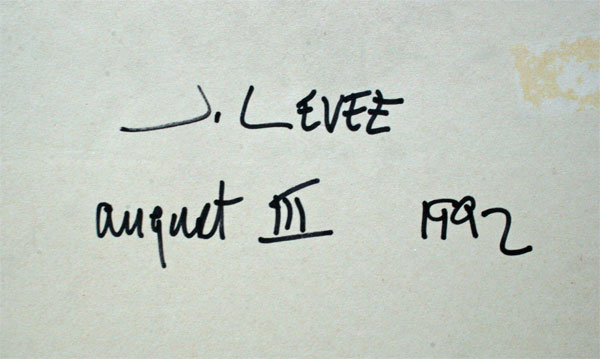 J. LEVEE
august III 1992